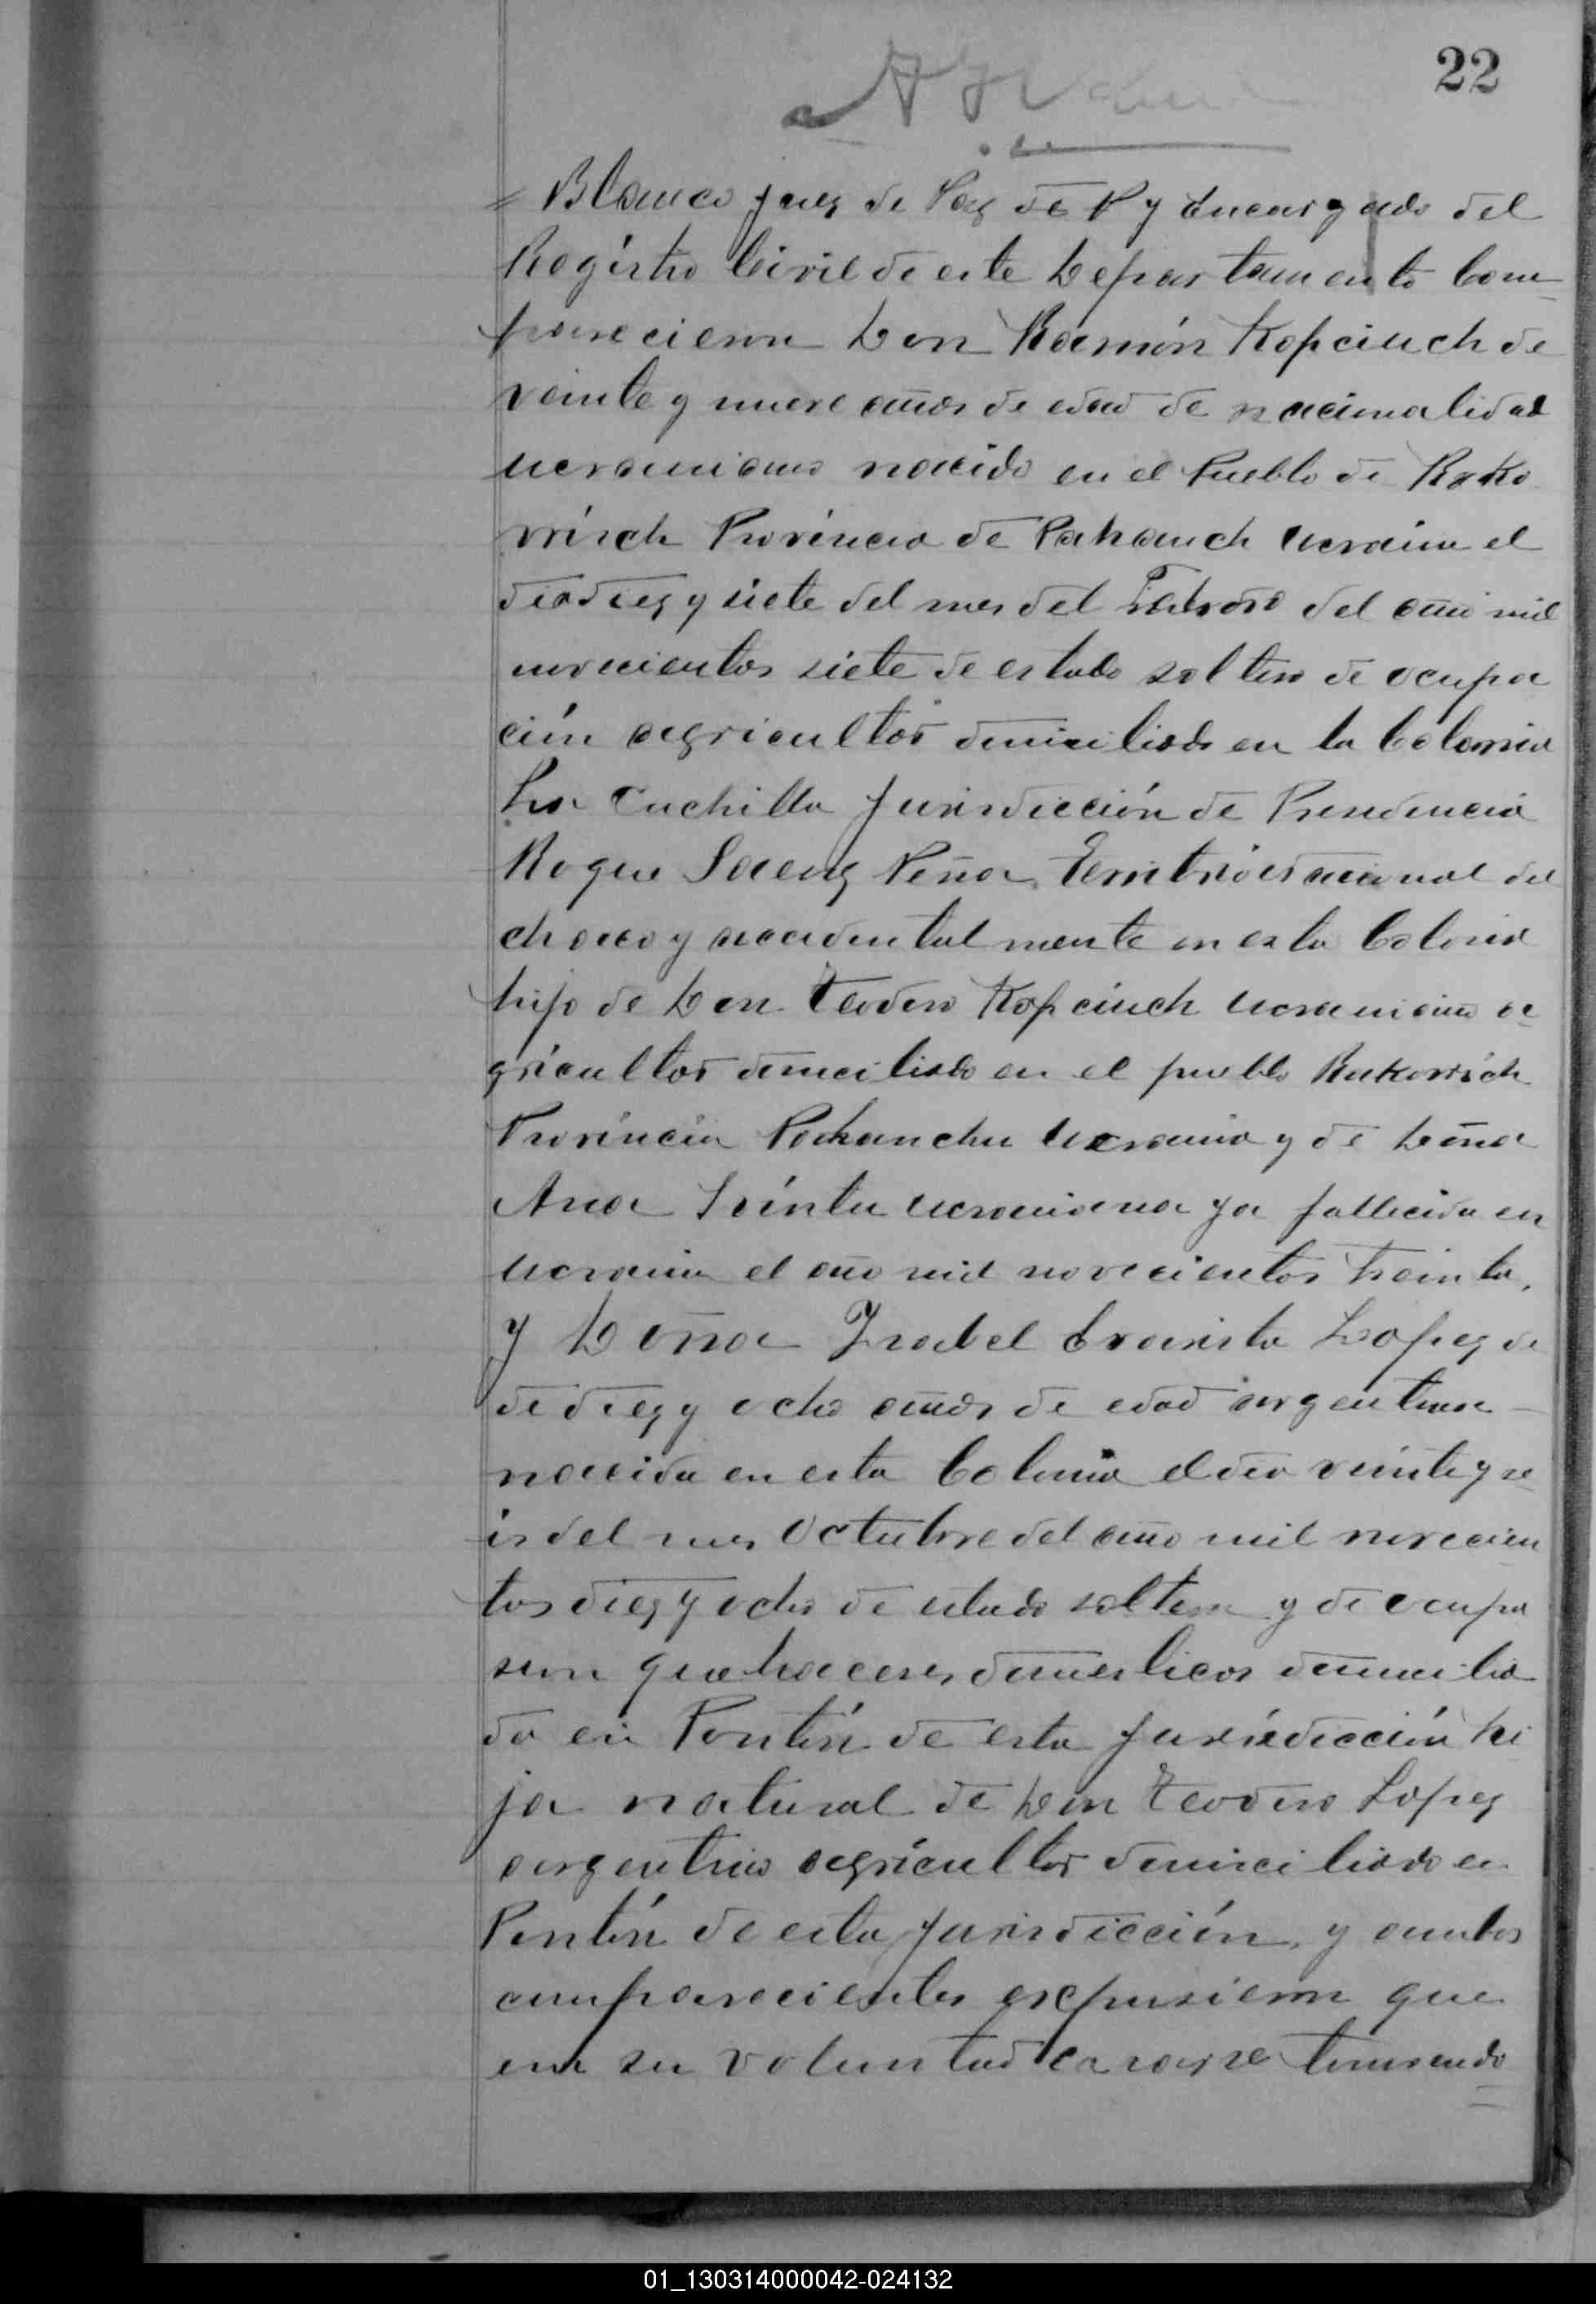 22
Blanco juez de Paz de P y Encargado del
Registro Civil de este Departamento Com-
parecieron Don Ramón Kopciuch de
veinte y nueve años de edad de nacionalidad
ucraniano nacido en el Pueblo de Rako
vrisch Provincia de Ucraina el
dia diez y siete del mes del Febrero del año mil
novecientos siete de estado soltero de ocupa
ción agricultor domiciliado en la Colonia
La Cuchilla Jurisdicción de Presidencia
Roque Saenz Peña Territorio nacional del
chaco y accidentalmente en esta Colonia
hijo de Don Teodoro Kopciuch ucraniano a-
gricultor domiciliado en el pueblo Rakovrisch
Provincia Ucrania y de Doña
Ana ucraniana ya fallecida en
ucrania el año mil novecientos treinta,
y Doña Ysabel Evarista Lopez de
de diez y ocho años de edad argentina
nacida en esta Colonia el dia veinte y se-
is del mes Octubre del año mil novecien
tos diez y ocho de estado soltera y de ocupa
sion quehaceres domesticos domicilia
da en Pontón de esta Jurisdicción hi
ja natural de Don Teodoro Lopez
argentino agricultor domiciliado en
Pontón de esta Jurisdicción, y ambos
comparecientes expusieron que
era su voluntad casarse tomando
01_130314000042-024132